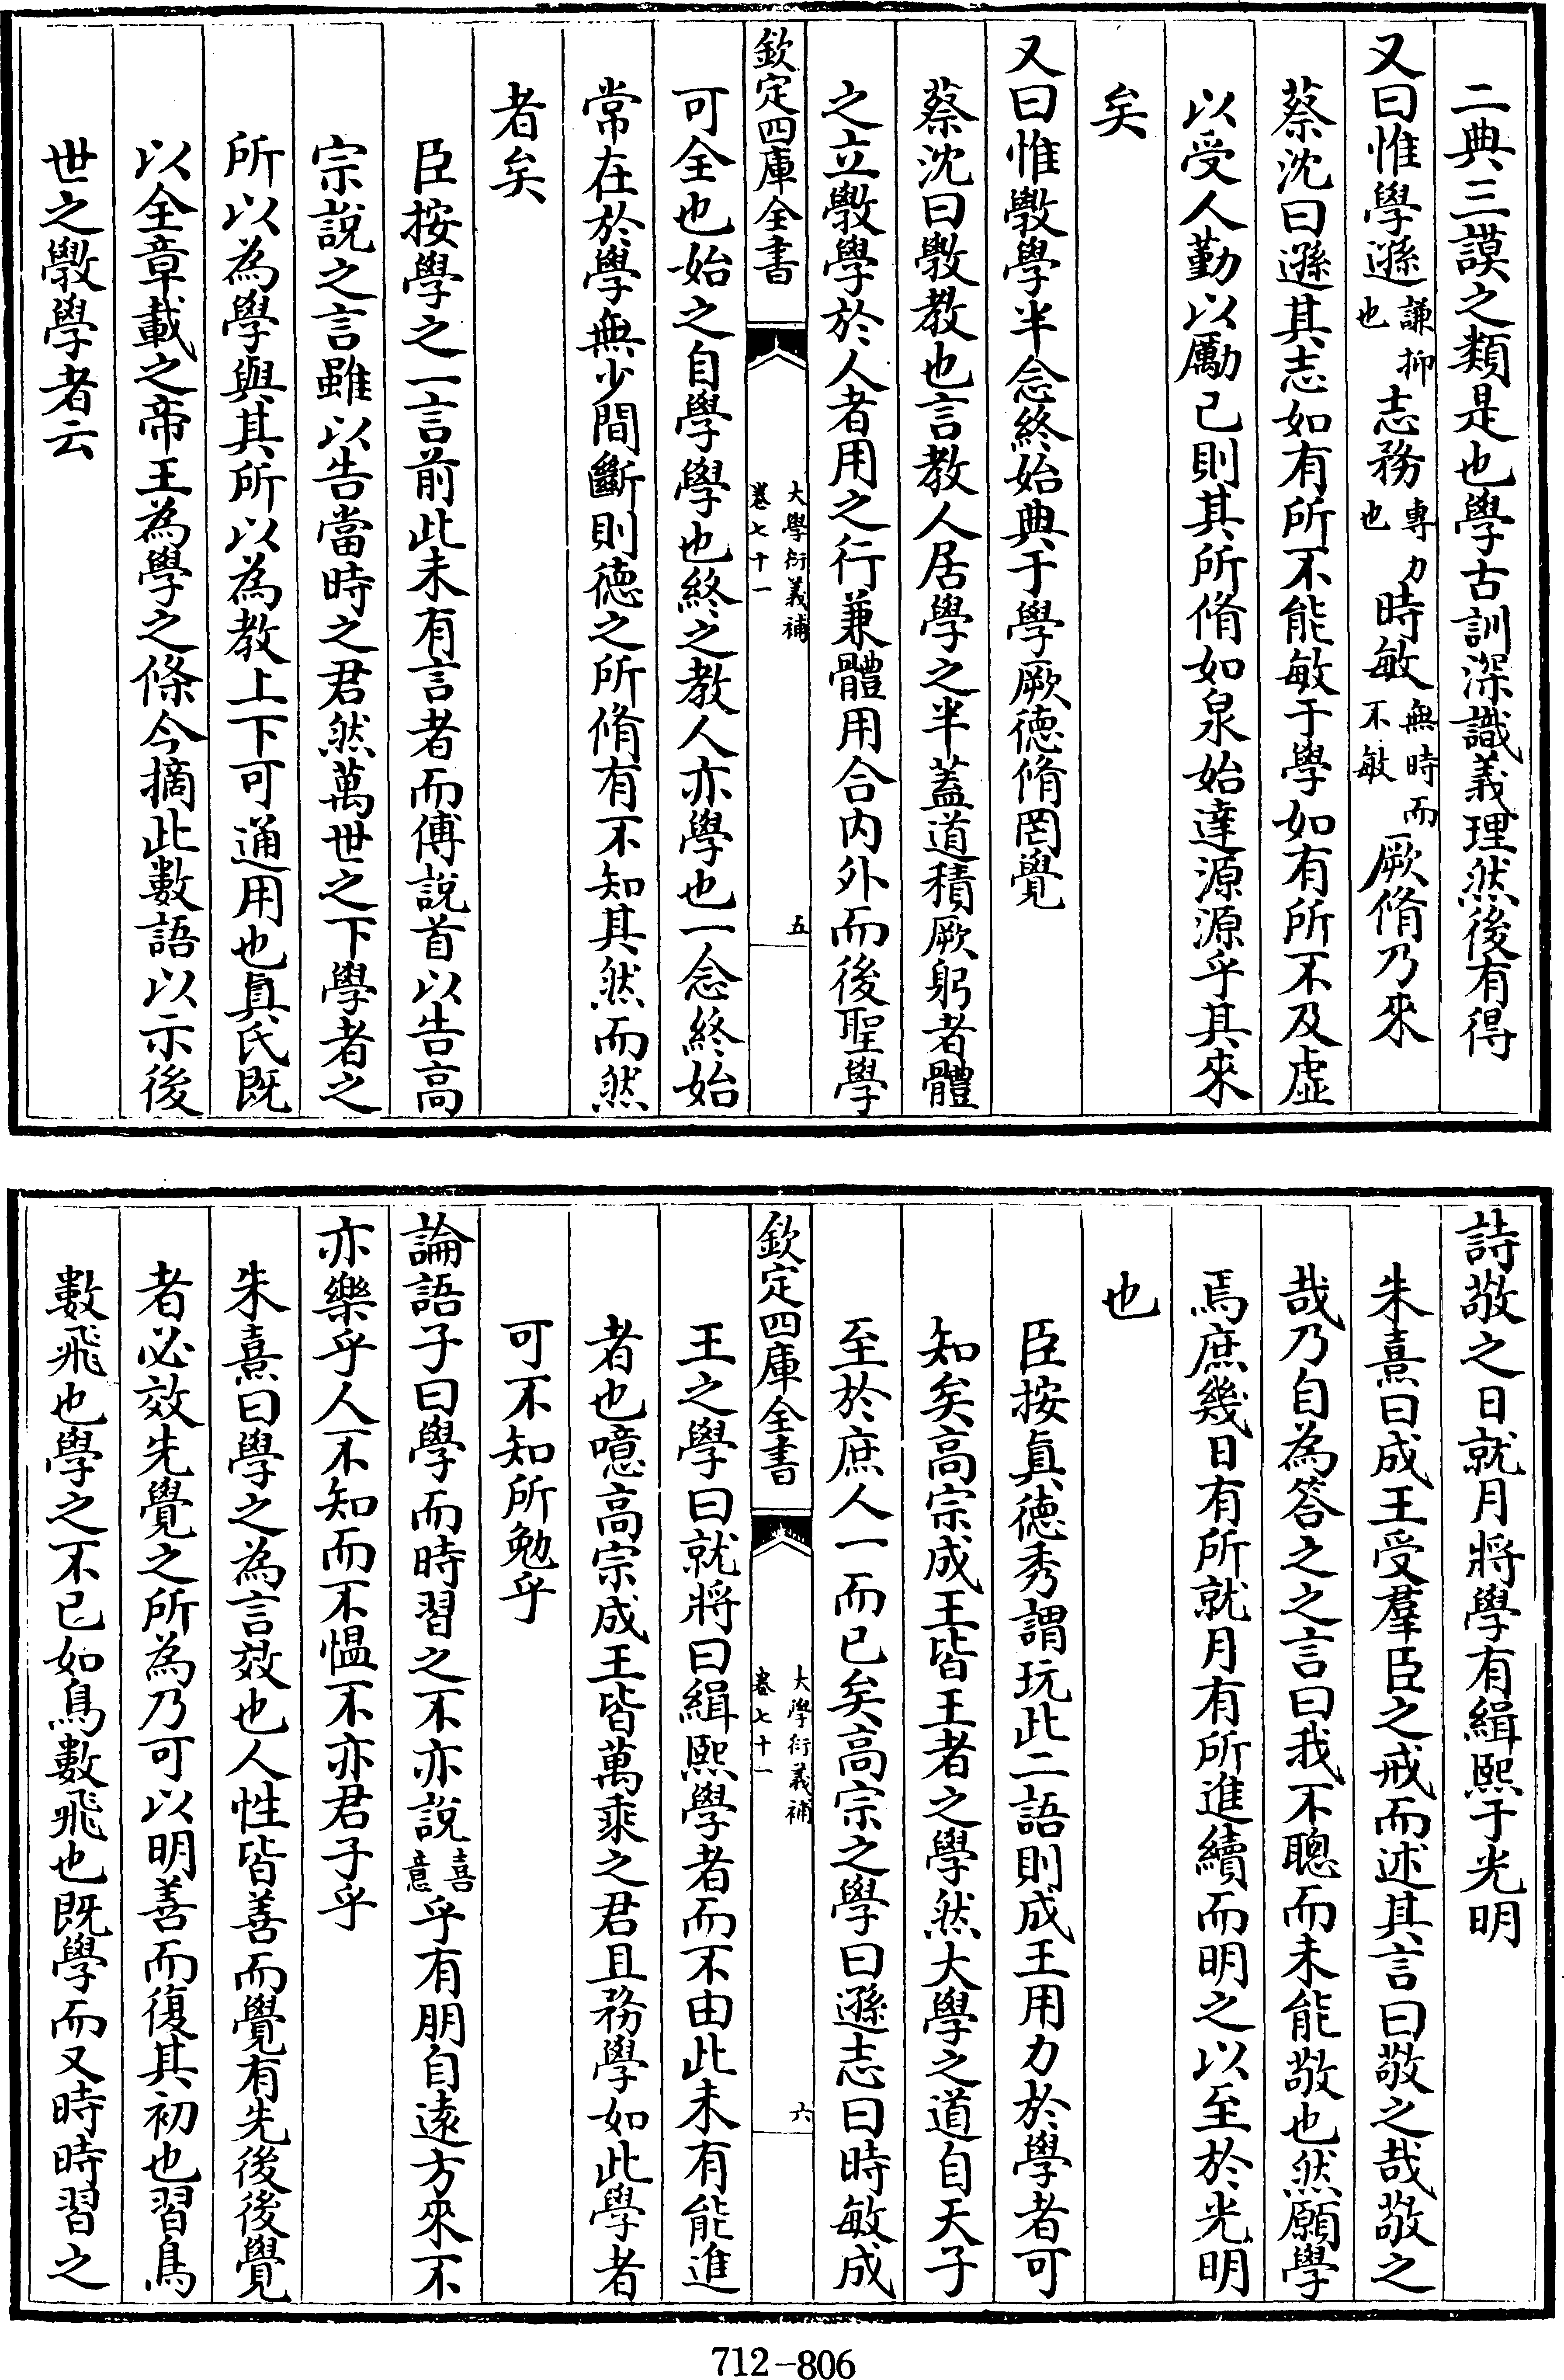 二典三謨之類是也學古訓深識義理然後有得
又曰惟學遜謙抑也志務專力也時敏無時而不敏厥脩乃來
蔡沈曰遜其志如有所不能敏于學如有所不及虛
以受人勤以勵己則其所脩如泉始達源源乎其來
矣
又曰惟斆學半念終始典于學厥德脩罔覺
蔡沈曰斆教也言教人居學之半蓋道積厥躬者體
之立斆學於人者用之行兼體用合內外而後聖學
欽定四庫全書
大學衍義補
卷七十一
五
可全也始之自學學也終之教人亦學也一念終始
常在於學無少間斷則德之所脩有不知其然而然
者矣
臣按學之一言前此未有言者而傅說首以告高
宗說之言雖以告當時之君然萬世之下學者之
所以為學與其所以為教上下可通用也眞氏既
以全章載之帝王為學之條今摘此數語以示後
世之斆學者云
詩敬之日就月將學有緝熙于光明
朱熹曰成王受羣臣之戒而述其言曰敬之哉敬之
哉乃自為答之之言曰我不聰而未能敬也然願學
焉庶幾日有所就月有所進續而明之以至於光明
也
臣按眞德秀謂玩此二語則成王用力於學者可
知矣高宗成王皆王者之學然大學之道自天子
至於庶人一而已矣高宗之學曰遜志曰時敏成
欽定四庫全書
大學衍義補
卷七十一
六
王之學曰就將曰緝熙學者而不由此未有能進
者也噫高宗成王皆萬乘之君且務學如此學者
可不知所勉乎
論語子曰學而時習之不亦說喜意乎有朋自遠方來不
亦樂乎人不知而不慍不亦君子乎
朱熹曰學之為言效也人性皆善而覺有先後後覺
者必效先覺之所為乃可以明善而復其初也習鳥
數飛也學之不已如鳥數飛也既學而又時時習之
712-806